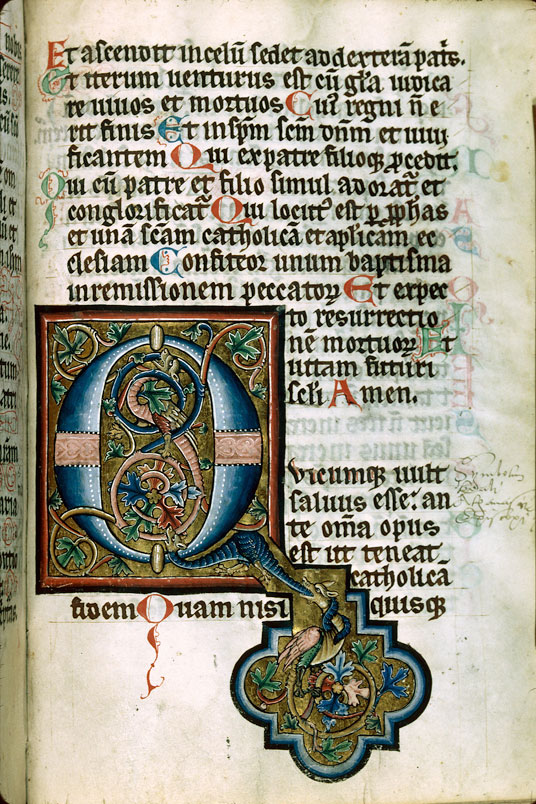 Et ascendit in celū sedet ad dexterā patͥs.
Et iterum uenturus est cū gl̄ia iudica
re uiuos et mortuos Cuiꝰ regni n̄ e
rit finis Et in sp̄m sc̄m dn̄m et uiui
ficantem Qui ex patre filioqꝫ ꝓcedit.
Qui cū patre et filio simul adorat̄ et
conglorificat̄ Qui locutꝰ est ꝑ ꝓphas
et unā sc̄am catholicā et ap̄licam ec
clesiam Confiteor unum baptisma
in remissionem peccatorꝫ Et expec
to resurrectio
nē mortuorꝫ Et
uitam futuri
sc̄li Amen.
Quicumqꝫ uult
saluus esse: an
te om̄a opus
est ut teneat
catholicā
fidem Quam nisi quisqꝫ